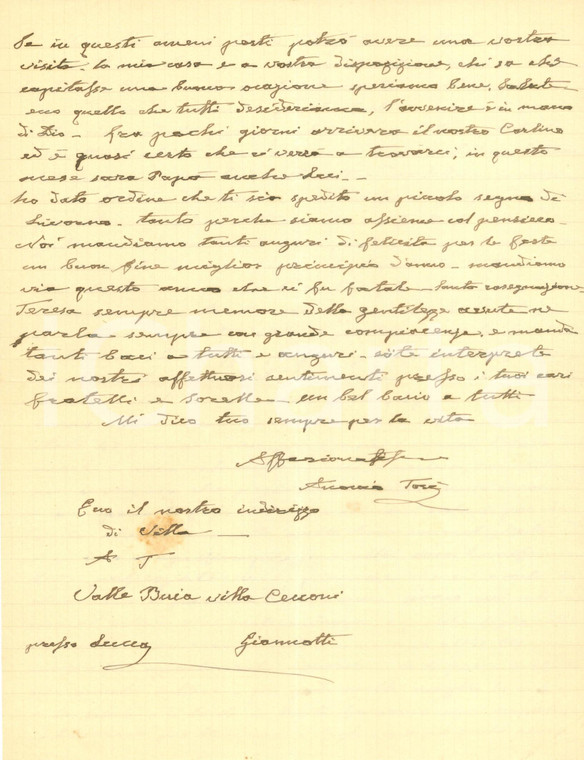 Se in questi ameni posti potrò avere una vostra
visita la mia casa e a vostra disposizione, chi sa che
capitasse una buona ocazione speriamo bene. Salute
ecco quello che tutti desideriamo, l'avvenire è in mano
di Dio - fra pochi giorni arrivera il nostro Carlino
ed è quasi certo che ci verrà a trovarci, in questo
mese sara Papà anche
ho dato ordine che ti sia spedito un piccolo segno di
Livorno - tanto perche siamo assieme col pensiero.
Noi mandiamo tanti auguri di felicita per le feste
un buon fine miglior principio d'anno - mandiamo
via questo anno che ci fu fatale - tanta rasegnazione -
Teresa sempre memore della gentileza avute ne
parla sempre con grande compiacenza, e manda
tanti baci a tutti e auguri - siate interprete
dei nostri affettuosi sentimenti presso i tuoi cari
fratelli e sorelle un bel bacio a tutti
Mi dico tuo sempre per la vita
Antonio
Ecco il nostro indirizzo
di Villa
A T
Valle Buia villa Cerconi
presso Lucca Giannotti